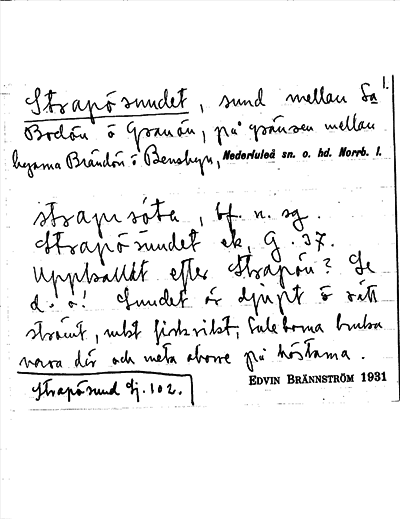 1.
Strapösundet, sund mellan Sa
Bodön o Granön, på gränsen mellan
byarna Brändön o Bensbyn, Nederluleå sn. o. hd. Norrb. l.
bf. n. sg.
Strapösundet ek. G. 37.
Uppkallat efter Strapön? Se
d. o! Sundet är djupt o rätt
strömt, mkt fiskrikt; Luleborna bruka
vara där och meta aborre på höstarna.
Strapösund Gj. 102.
EDVIN BRÄNNSTRÖM 1931